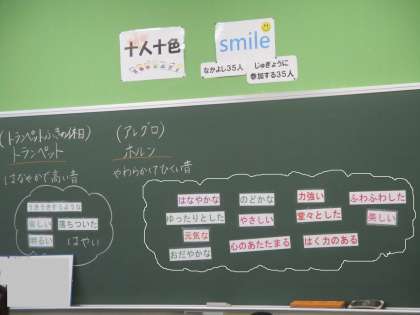 十人十色
smile
なかよし35人
じゅぎょうに
参加する35人
(トランペットふきの休日)
トランペット
はなやかで高い音
うきうきするような
楽しい
落ちついた
明るい
はやい
(アレグロ)
ホルン
やわらかくてひくい音
はなやかな
のどかな
力強い
ふわふわした
ゆったりとした
やさしい
堂々とした
美しい
元気な
心のあたたまる
はく力のある
おだやかな